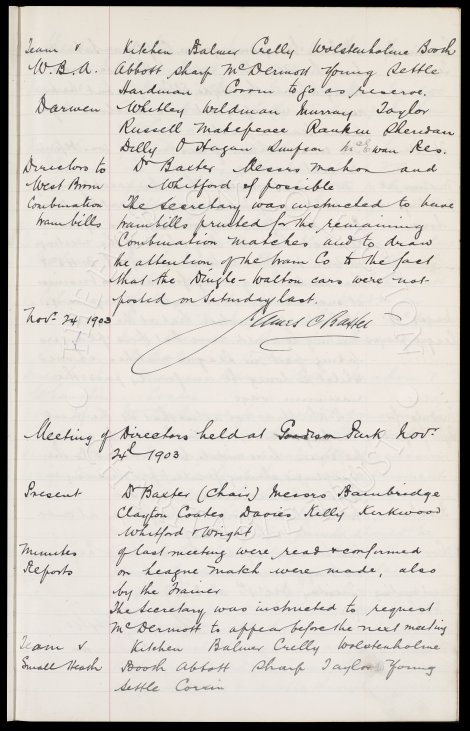 Team v Kitchen Balmer Crelly Wolstenholme Booth
W.B.A. Abbott Sharp McDermott Young Settle
Hardman Corrin to go as reserve.
Darwen Whitley Wildman Murray Taylor
Russell Makepeace Rankin Sheridan
Dilly O'Hagan Simpson McEwan Res.
Directors to Dr Baxter Messrs Mahon and
West Brom Whitford if possible
Combination The Secretary was instructed to have
trambills trambills printed for the remaining
Combination matches and to draw
the attention of the tram Co to the fact
that the Dingle-Walton cars were not
posted on Saturday last.
Novr 24 1903 James C Baxter
Meeting of Directors held at Goodison Park Novr
24th 1903
Present Dr Baxter (Chair) Messrs Bainbridge
Clayton Coates Davies Kelly Kirkwood
Whitford & Wright
Minutes of last meeting were read & confirmed
Reports on League match were made, also
by the Trainer
The Secretary was instructed to request
McDermott to appear before the next meeting
Team v Kitchen Balmer Crelly Wolstenholme
Small Heath Booth Abbott Sharp Taylor Young
Settle Corrin